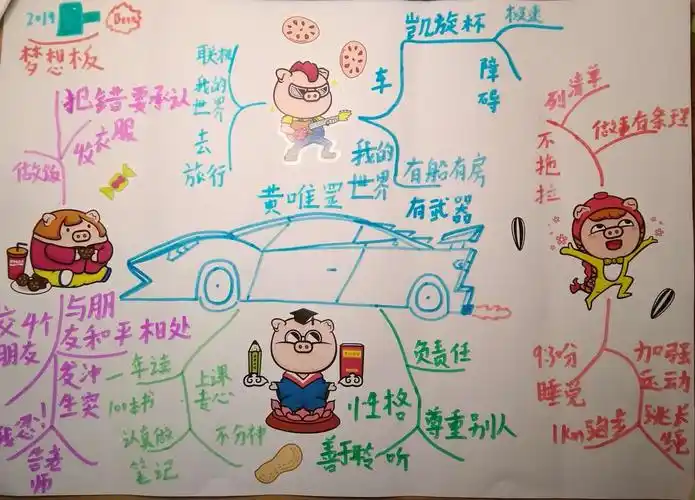 2019
梦想板
联机
我的
世界
去
旅行
车
凯旋杯
极速
障
碍
我的
世界
有船有房
有武器
列清单
做事有条理
不拖
拉
犯错要承认
发衣服
做饭
黄唯罡
交4个
朋友
与朋
友和平相处
发冲
生突
告老
师
一年读
100本书
上课
专心
认真做
笔记
不分神
负责任
性格
尊重别人
善于聆听
9:30分
睡觉
加强
运动
1Km跑步
跳长
绳